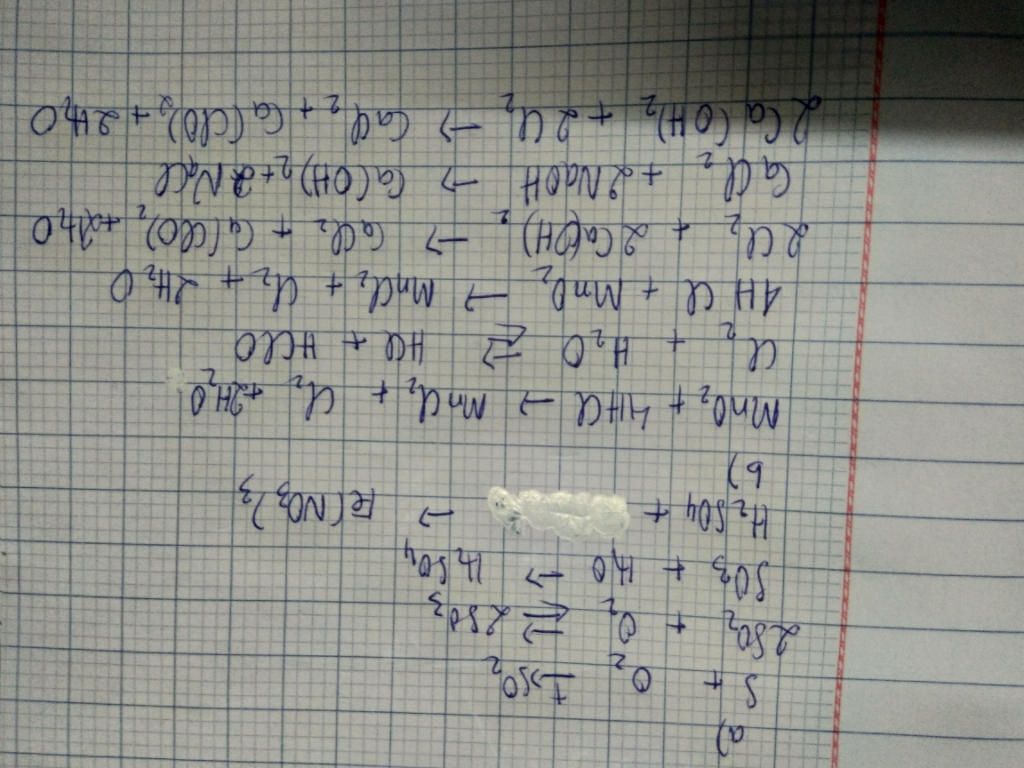 a)
S + O₂ → SO₂
2SO₂ + O₂ ⇄ 2SO₃
SO₃ + H₂O → H₂SO₄
H₂SO₄ + → Fe(NO₃)₃
b)
MnO₂ + 4HCl → MnCl₂ + Cl₂ + 2H₂O
Cl₂ + H₂O ⇄ HCl + HClO
4HCl + MnO₂ → MnCl₂ + Cl₂ + 2H₂O
2Cl₂ + 2Ca(OH)₂ → CaCl₂ + Ca(ClO)₂ + 2H₂O
CaCl₂ + 2NaOH → Ca(OH)₂ + 2NaCl
2Ca(OH)₂ + 2Cl₂ → CaCl₂ + Ca(ClO)₂ + 2H₂O